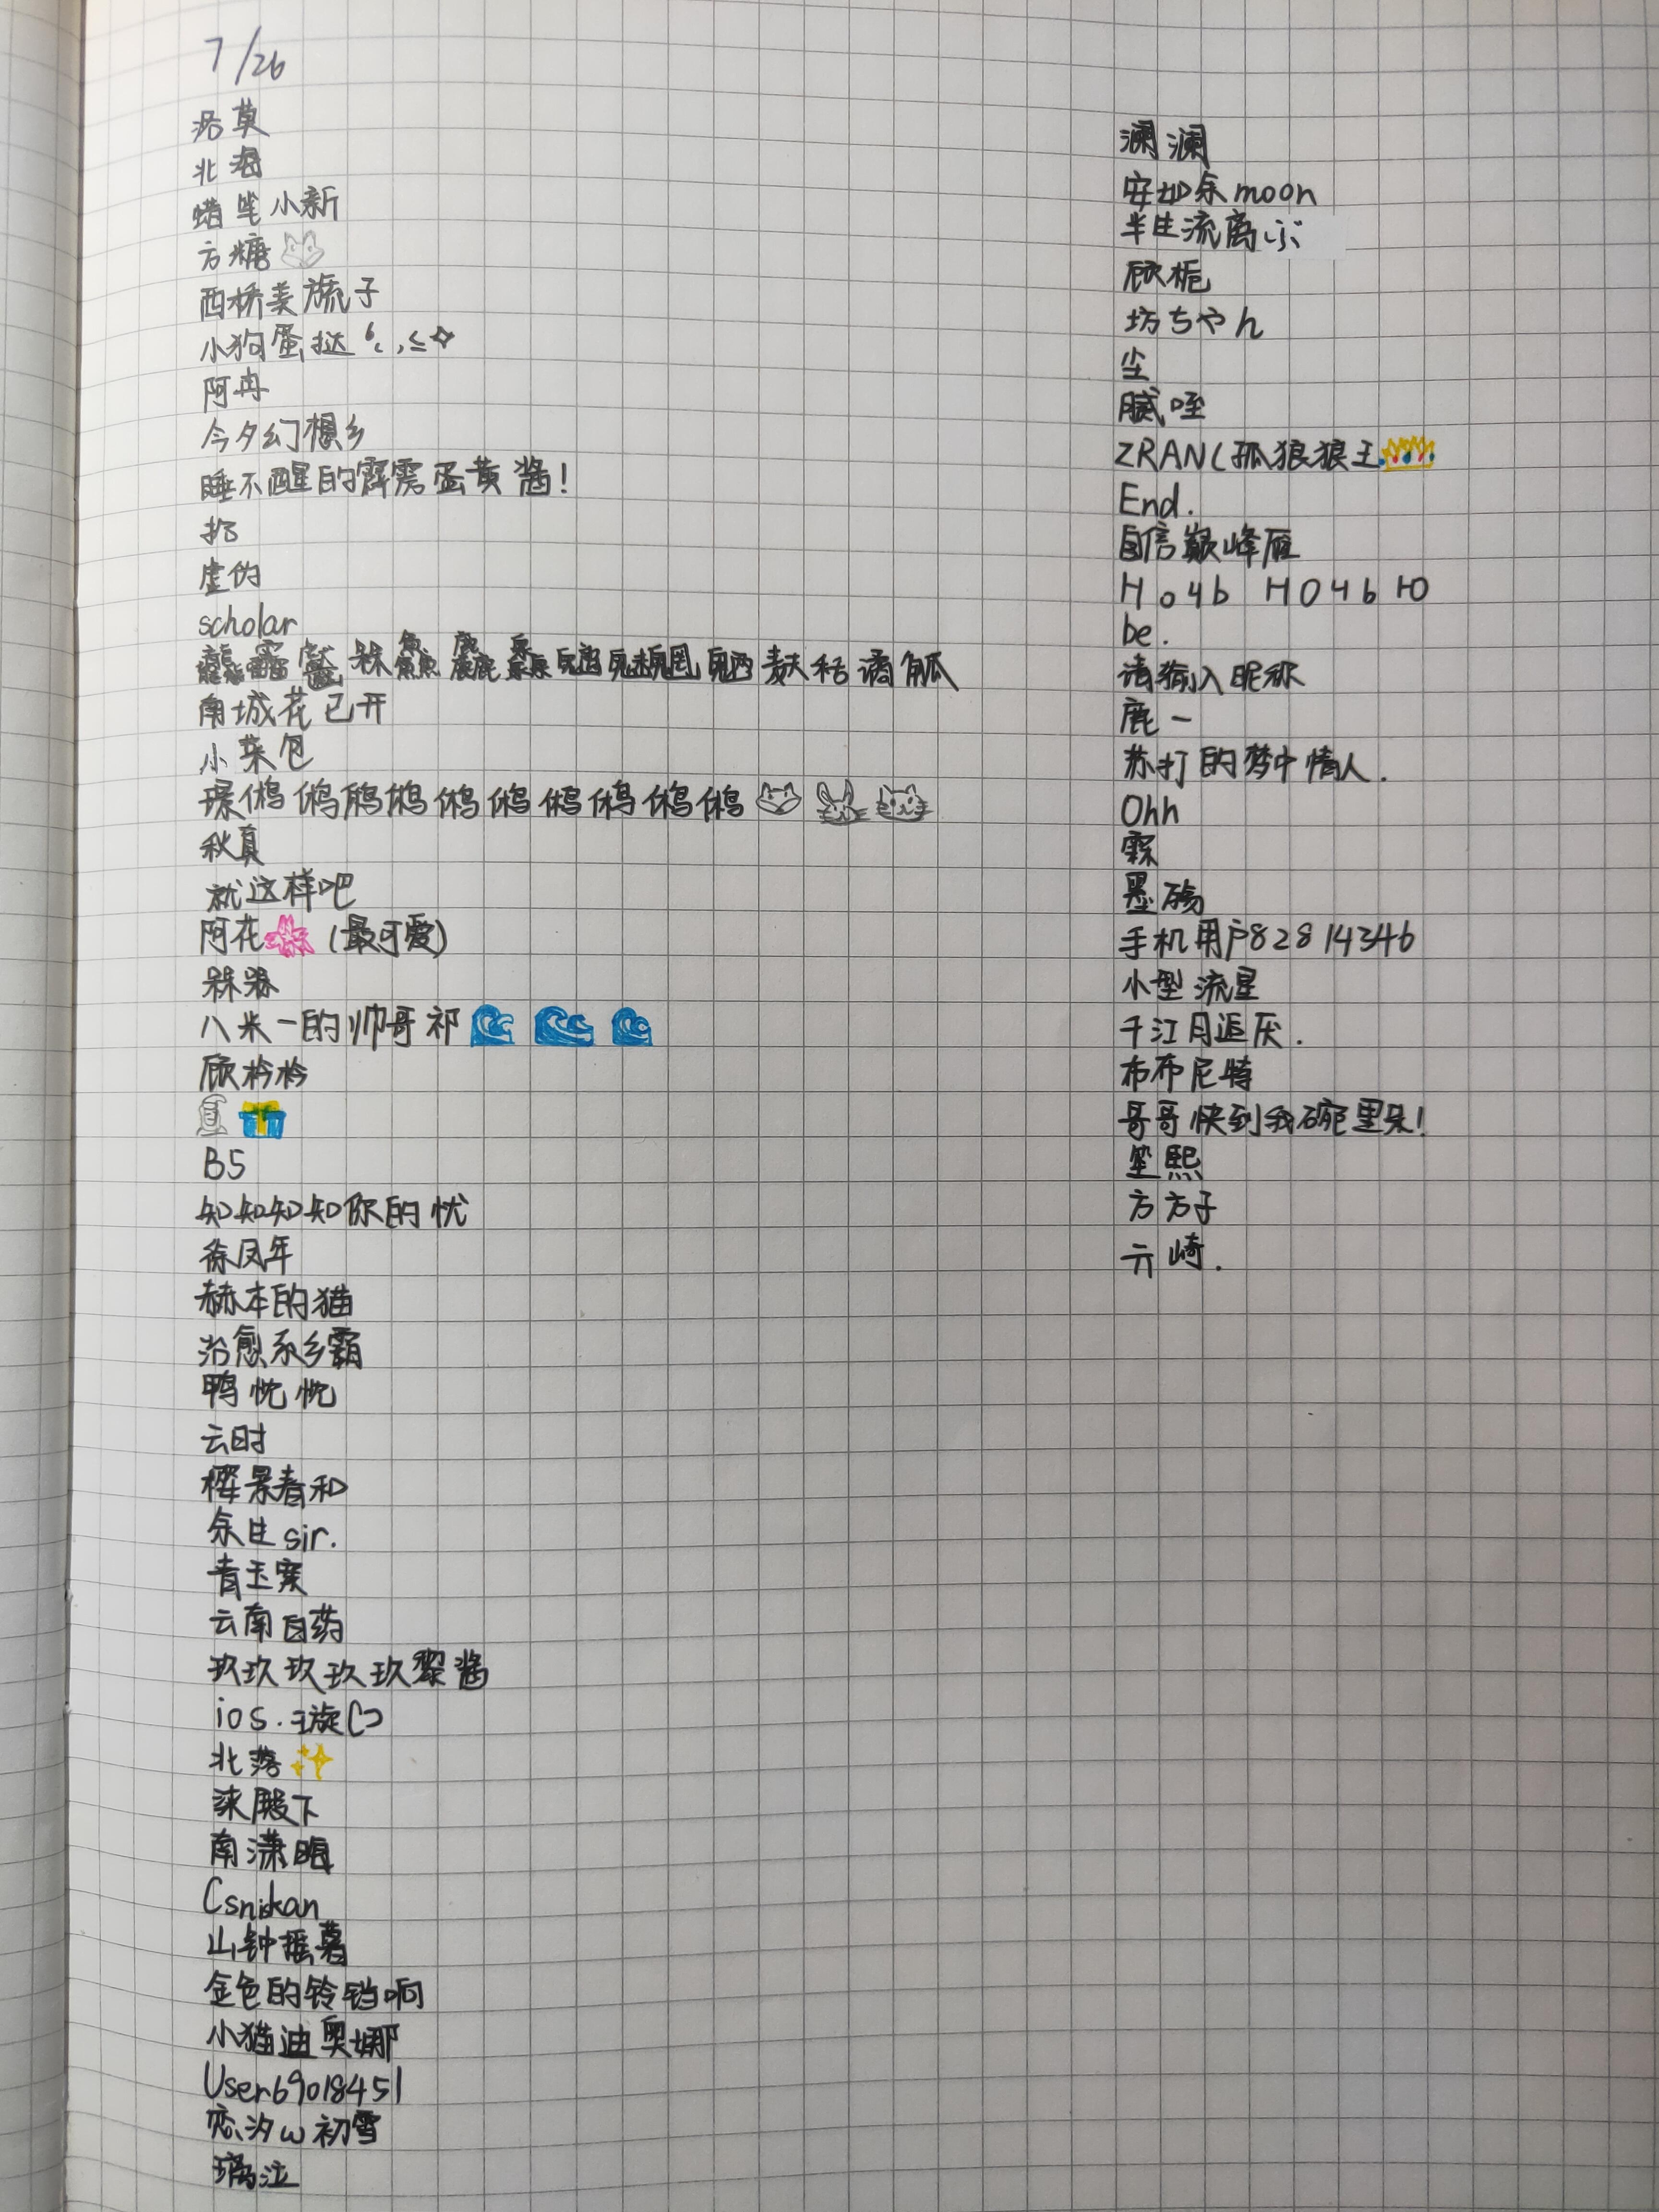 7/26
洛莫
北海
蜡笔小新
方糖
西桥麦旒子
小狗蛋挞
阿冉
今夕幻想乡
睡不醒的霹雳蛋黄酱！
扔
虚伪
scholar
南城花已开
小菜包
秋真
就这样吧
阿花（最可爱）
槑槑
八米一的帅哥祁
顾衿衿
B5
知知知知你的忧
徐凤年
赫本的猫
治愈系乡霸
鸭忱忱
云时
樱景春和
余生sir.
青玉案
云南白药
玖玖玖玖玖黎酱
ios.璇
北落
涞殿下
南潇晚
Csniskan
山钟摇暮
金色的铃铛响
小猫迪奥娜
User69018451
恋汐ω初雪
璃泣
澜澜
安如余moon
半生流离ぷ
顾栀
坊ちやん
尘
腻咥
ZRAN(孤狼狼王
End.
自信巅峰雁
Ho4b HO4b HO
be.
请输入昵称
鹿一
苏打的梦中情人.
Ohh
霖
墨殇
手机用户82814346
小型流星
千江月追厌.
布布尼特
哥哥快到我碗里朵！
笙熙
方方子
亓崎.